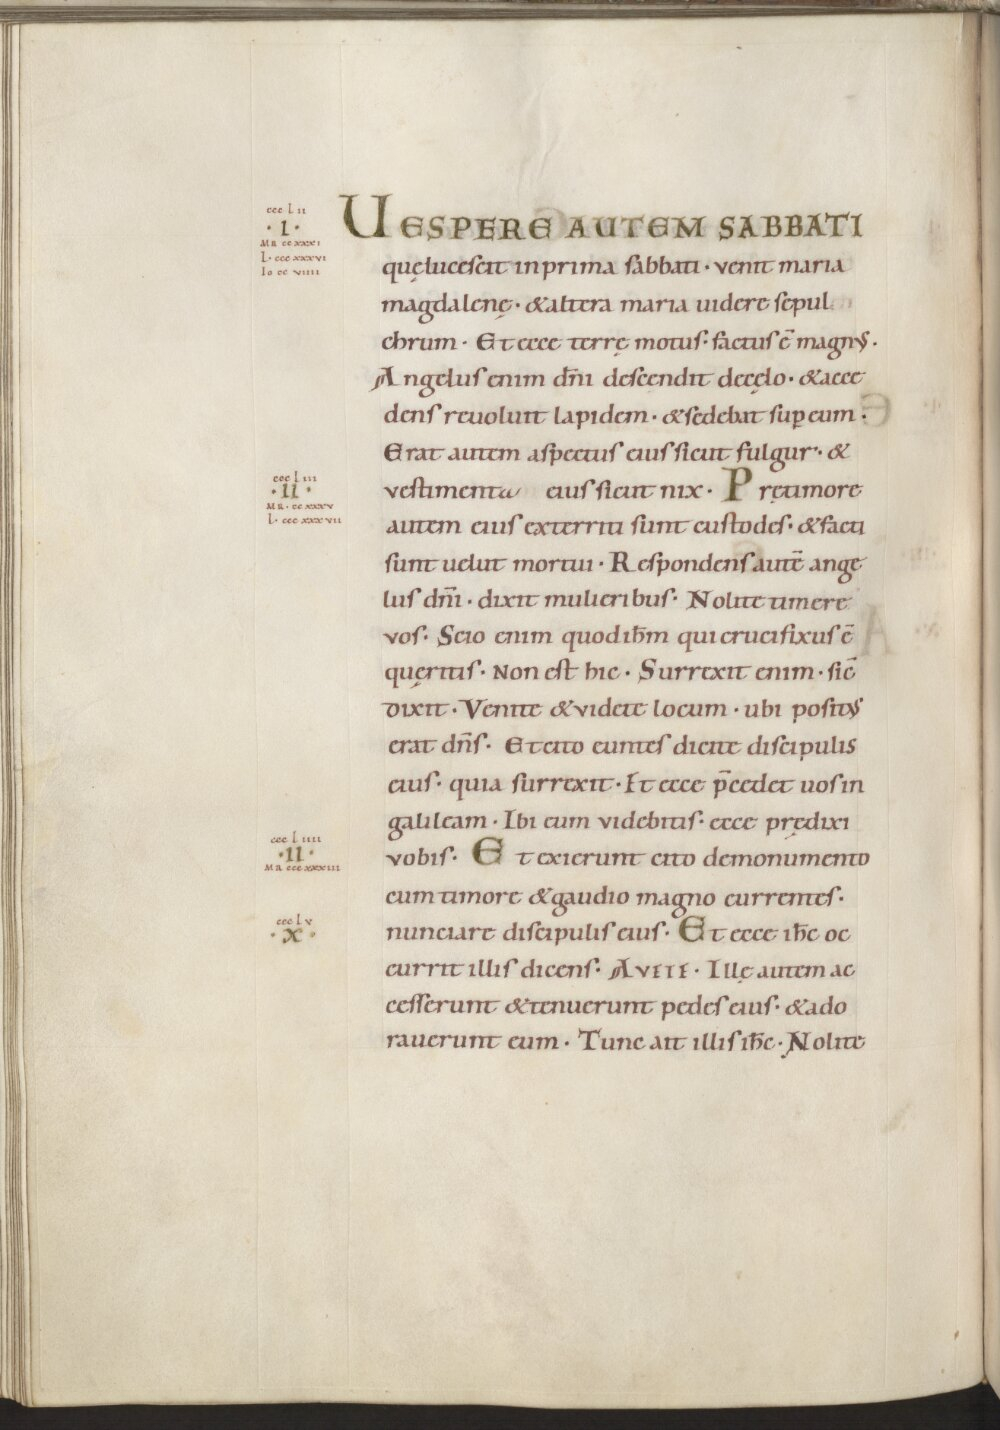 ccc l ii
· I ·
MR cc xxxi
L · ccc xxxvi
Io cc viiii
UESPERE AUTEM SABBATI
quę lucescit in prima sabbati · venit maria
magdalenę · & altera maria uidere sepul
chrum · Et ecce terrę motus · factus ē magnus ·
Angelus enim dn̄i descendit de cęlo · & acce
dens reuoluit lapidem · & sedebat sup eum ·
Erat autem aspectus eius sicut fulgur · &
ccc l iii
· II ·
MR · cc xxxv
L · ccc xxxvii
vestimenta eius sicut nix · Prę timore
autem eius exterriti sunt custodes · & facti
sunt uelut mortui · Respondens autē ange
lus dn̄i · dixit mulieribus · Nolite timere
vos · Scio enim quod ih̄m qui crucifixus ē
quęritis · Non est hic · Surrexit enim · sic̄
dixit · Venite & videte locum · ubi positus
erat dn̄s · Et cito euntes dicite discipulis
eius · quia surrexit · Et ecce p̄cedet uos in
galileam · Ibi eum videbitis · ecce prędixi
ccc l iiii
· II ·
MR ccc xxxiii
vobis · Et exierunt cito de monumento
cum timore & gaudio magno currentes ·
ccc l v
· X ·
nunciare discipulis eius · Et ecce ih̄c oc
currit illis dicens · AVETE · Illę autem ac
cesserunt & tenuerunt pedes eius · & ado
rauerunt eum · Tunc ait illis ih̄c · Nolite